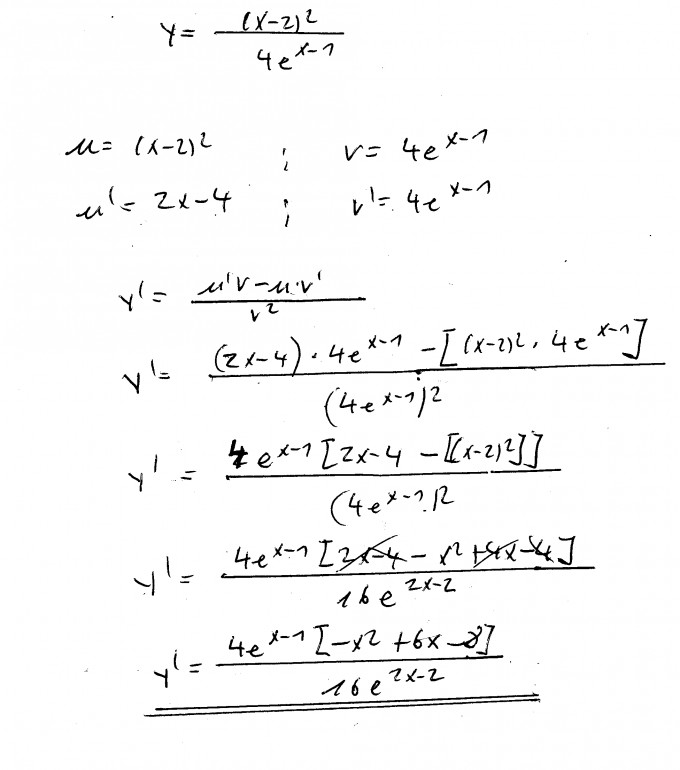 y = (x-2)² / 4e^(x-1)
u = (x-2)² ; v = 4e^(x-1)
u' = 2x-4 ; v' = 4e^(x-1)
y' = (u'v - u·v') / v²
y' = ((2x-4) · 4e^(x-1) - [(x-2)² · 4e^(x-1)]) / (4e^(x-1))²
y' = 4e^(x-1) [2x-4 - [(x-2)²]] / (4e^(x-1))²
y' = 4e^(x-1) [2x-4 - x² + 4x - 4] / 16e^(2x-2)
y' = 4e^(x-1) [-x² + 6x - 8] / 16e^(2x-2)